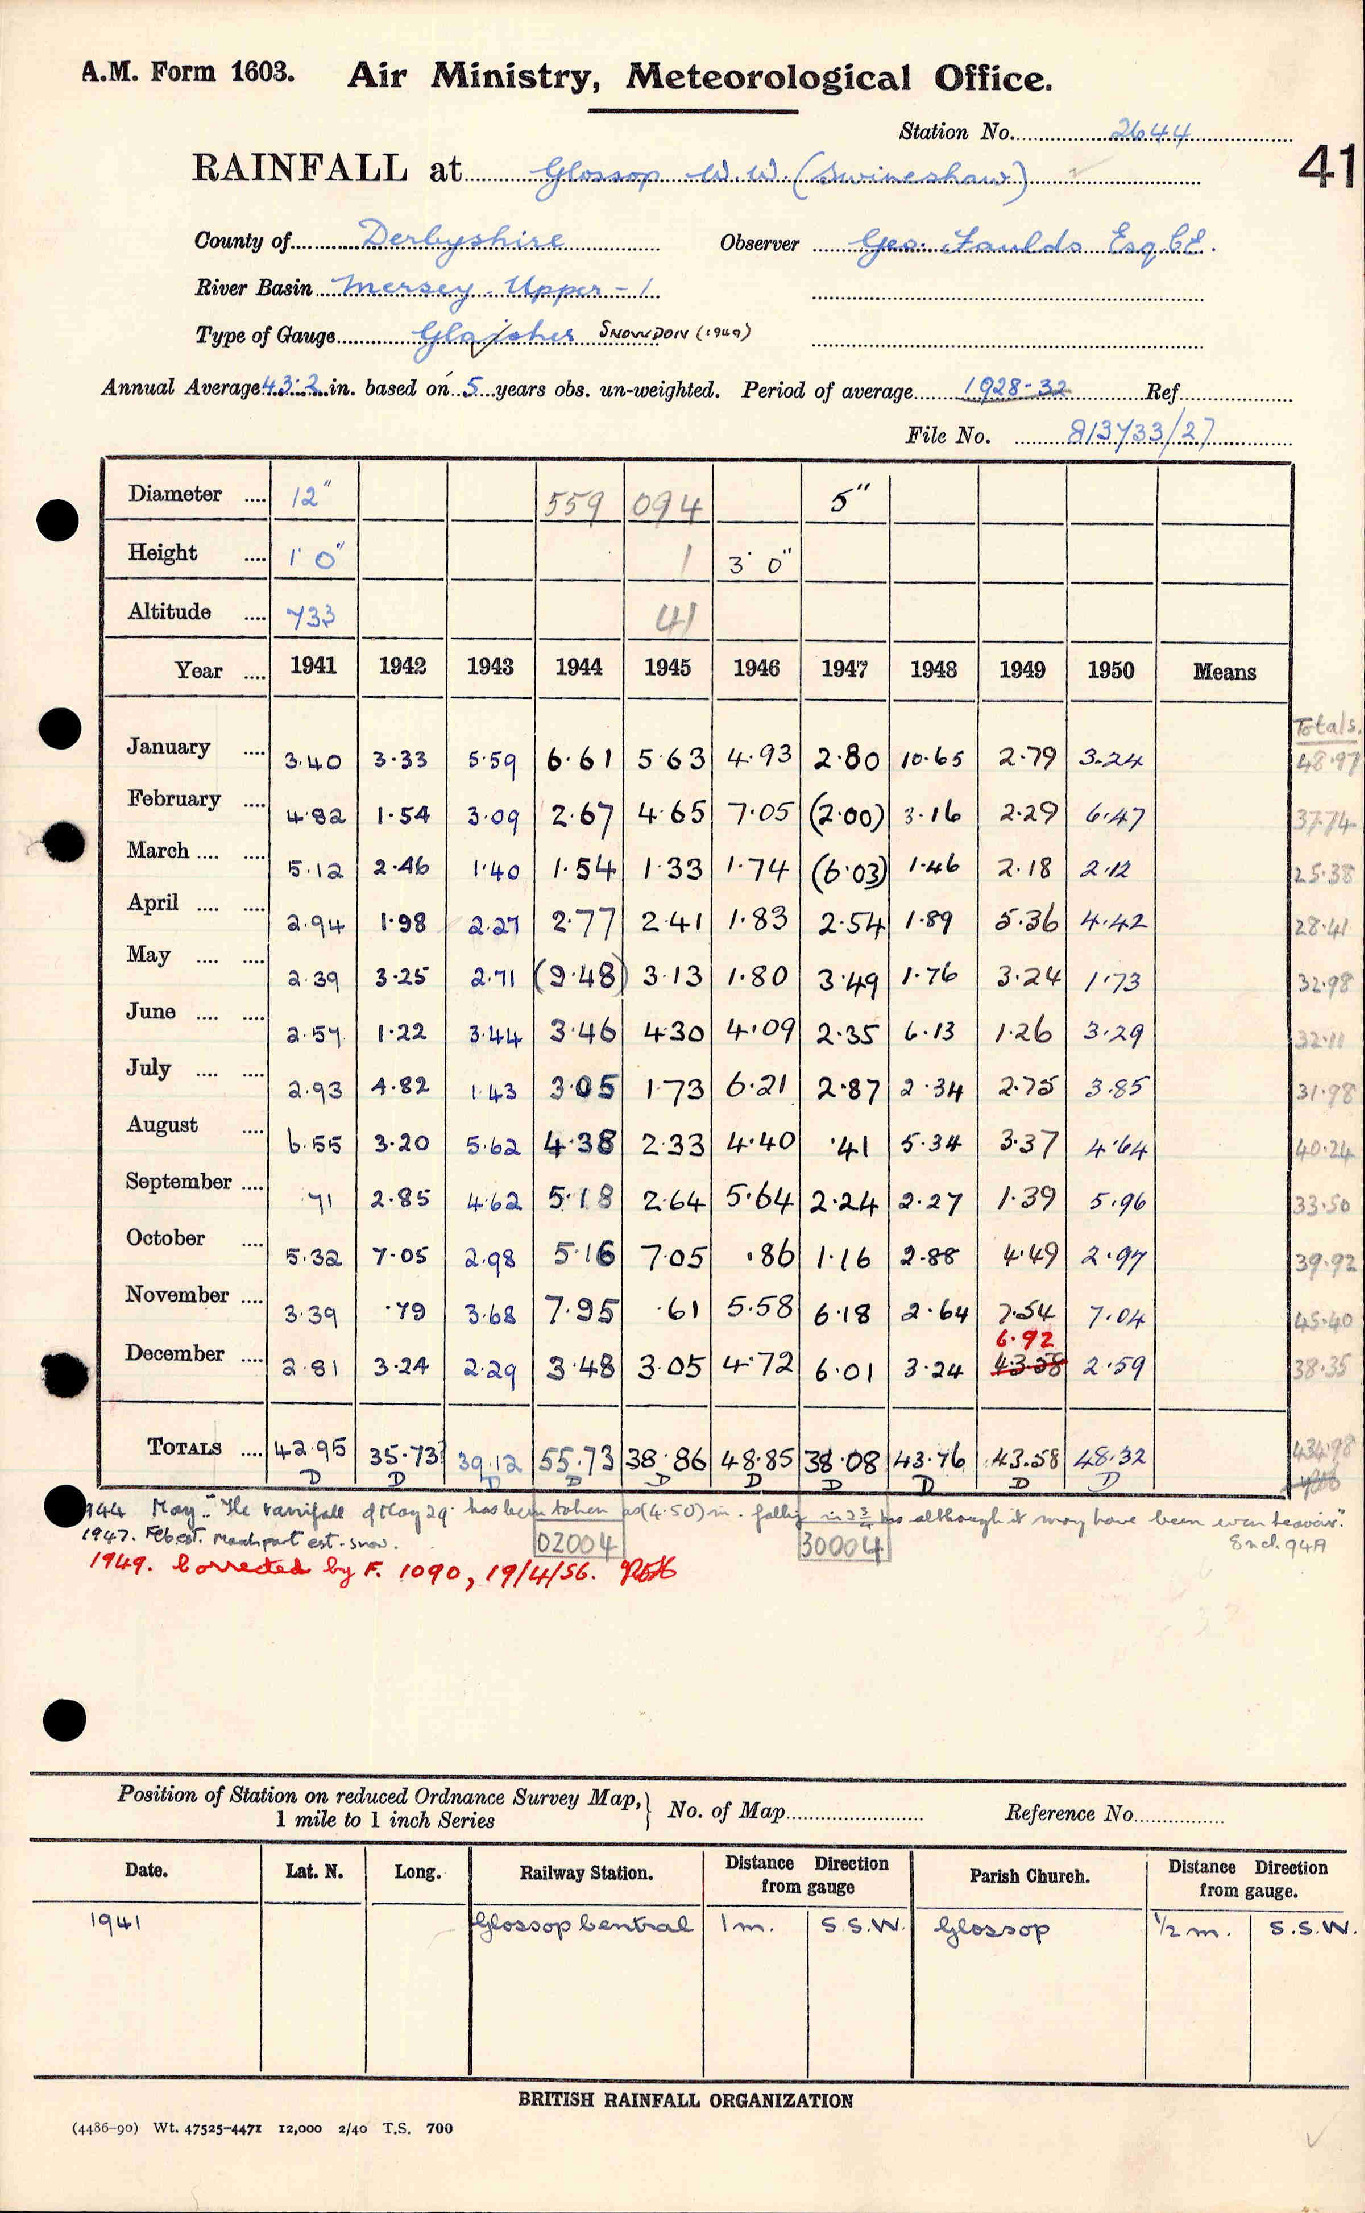 A.M. Form 1603. Air Ministry, Meteorological Office.
Station No. 2644
41
RAINFALL at Glossop W.W. (Swineshaw)
County of Derbyshire Observer Geo. Faulds Esq. C.E.
River Basin Mersey. Upper - 1
Type of Gauge Glaisher SNOWDON (1949)
Annual Average 43.2 in. based on 5 years obs. un-weighted. Period of average 1928-32 Ref.
File No. 813733/27
Diameter .... 12" 559 094 5"
Height .... 1' 0" 1 3' 0"
Altitude .... 733 41
Year .... 1941 1942 1943 1944 1945 1946 1947 1948 1949 1950 Means
Totals.
January .... 3.40 3.33 5.59 6.61 5.63 4.93 2.80 10.65 2.79 3.24 48.97
February .... 4.82 1.54 3.09 2.67 4.65 7.05 (2.00) 3.16 2.29 6.47 37.74
March .... .... 5.12 2.46 1.40 1.54 1.33 1.74 (6.03) 1.46 2.18 2.12 25.38
April .... .... 2.94 1.98 2.27 2.77 2.41 1.83 2.54 1.89 5.36 4.42 28.41
May .... .... 2.39 3.25 2.71 (9.48) 3.13 1.80 3.49 1.76 3.24 1.73 32.98
June .... .... 2.57 1.22 3.44 3.46 4.30 4.09 2.35 6.13 1.26 3.29 32.11
July .... .... 2.93 4.82 1.43 3.05 1.73 6.21 2.87 2.34 2.75 3.85 31.98
August .... 6.55 3.20 5.62 4.38 2.33 4.40 .41 5.34 3.37 4.64 40.24
September .... .71 2.85 4.62 5.18 2.64 5.64 2.24 2.27 1.39 5.96 33.50
October .... 5.32 7.05 2.98 5.16 7.05 .86 1.16 2.88 4.49 2.97 39.92
November .... 3.39 .79 3.68 7.95 .61 5.58 6.18 2.64 7.54 7.04 45.40
6.92
December .... 2.81 3.24 2.29 3.48 3.05 4.72 6.01 3.24 43.58 2.59 38.35
TOTALS .... 42.95 35.73 39.12 55.73 38.86 48.85 38.08 43.76 43.58 48.32 434.98
D D D D D D D D D D
1944 May. "The rainfall of May 29 has been taken as (4.50) in. falling in 2 3/4 hrs although it may have been even heavier."
1947. Feb est. March part est. snow. 02004 30004 Encl 94A
1949. Corrected by F. 1090, 19/4/56.
Position of Station on reduced Ordnance Survey Map, 1 mile to 1 inch Series } No. of Map Reference No.
Date. Lat. N. Long. Railway Station. Distance Direction from gauge Parish Church. Distance Direction from gauge.
1941 Glossop Central 1 m. S.S.W. Glossop 1/2 m. S.S.W.
BRITISH RAINFALL ORGANIZATION
(4486-90) Wt. 47525-4471 12,000 2/40 T.S. 700